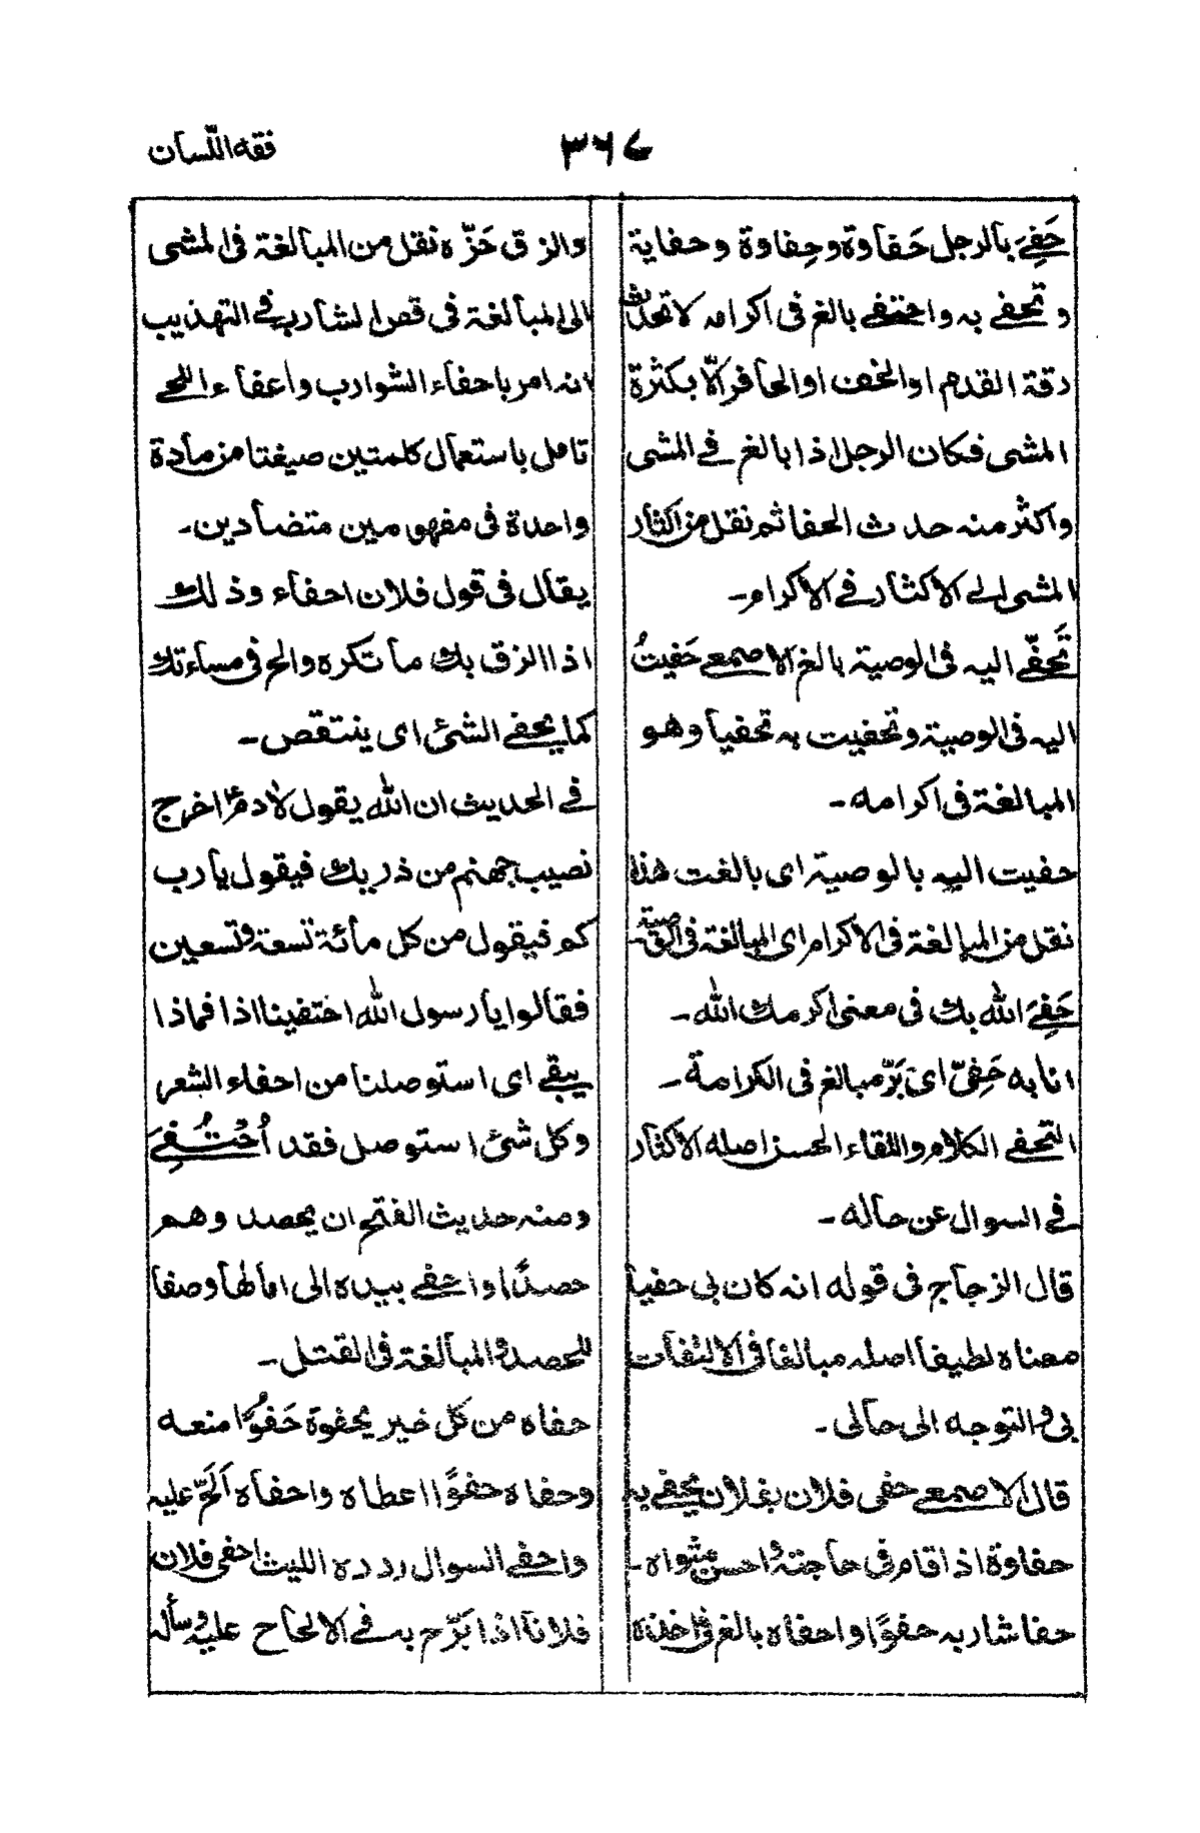 ٣٦٧
فقه اللّسان
حَفِيَ بالرجل حَفاوة وحِفاوة وحفاية
وتحفي به واحتفي بالغ فى اكرامه لا تحدث
رقة القدم او الخف او الحافر الّا بكثرة
المشى فكان الرجل اذا بالغ في المشى
واكثر منه حدث الحفا ثم نقل من اكثار
المشى الي الاكثار في الاكرام۔
تَحفّي اليه فى الوصية بالغ الاصمعي حَفيتُ
اليه فى الوصية وتحفيت به تحفيا وهو
المبالغة فى اكرامه۔
حفيت اليه بالوصية اى بالغت هذا
نقل من المبالغة فى الاكرام اى المبالغة فى الوصية۔
حَفِيَ الله بك فى معنى اكرمك الله۔
انا به حَفِيّ اى بَرّ مبالغ فى الكرامة۔
التحفي الكلام واللقاء الحسن اصله الاكثار
في السوال عن حاله۔
قال الزجاج فى قوله انه كان بى حفيا
معناه لطيفا اصله مبالغا فى الالتفات
بى والتوجه الى حالى۔
قال الاصمعي حفى فلان بفلان يحفي به
حفاوة اذا اقام فى حاجته واحسن مثواه۔
حفا شاربه حفوًا واحفاه بالغ فى اخذه
والزق حَزّه نقل من المبالغة فى المشى
الى المبالغة فى قص الشارب في التهذيب
انه امر باحفاء الشوارب واعفاء اللحي
تامل باستعمال كلمتين صيغتا من مادة
واحدة فى مفهومين متضادين۔
يقال فى قول فلان احفاء وذلك
اذا الزق بك ما تكره والح فى مساءتك
كما يحفي الشئ اى ينتقص۔
في الحديث ان الله يقول لادمؑ اخرج
نصيب جهنم من ذريتك فيقول يارب
كم فيقول من كل مائة تسعة وتسعين
فقالوا يا رسول الله احتفينا اذا فماذا
يبقي اى استوصلنا من احفاء الشعر
وكل شئ استوصل فقد اُحْتُفِيَ
ومنه حديث الفتح ان يحصد وهم
حصدًا واحفي بيده الى امالها وصفا
للحصد والمبالغة فى القتل۔
حفاه من كل خير يحفوة حَفوًا منعه
وحفاه حفوًا اعطاه واحفاه اَلَحّ عليه
واحفي السوال ردده الليث احفى فلان
فلانا اذا بَرّح به في الالحاح عليه وسأله